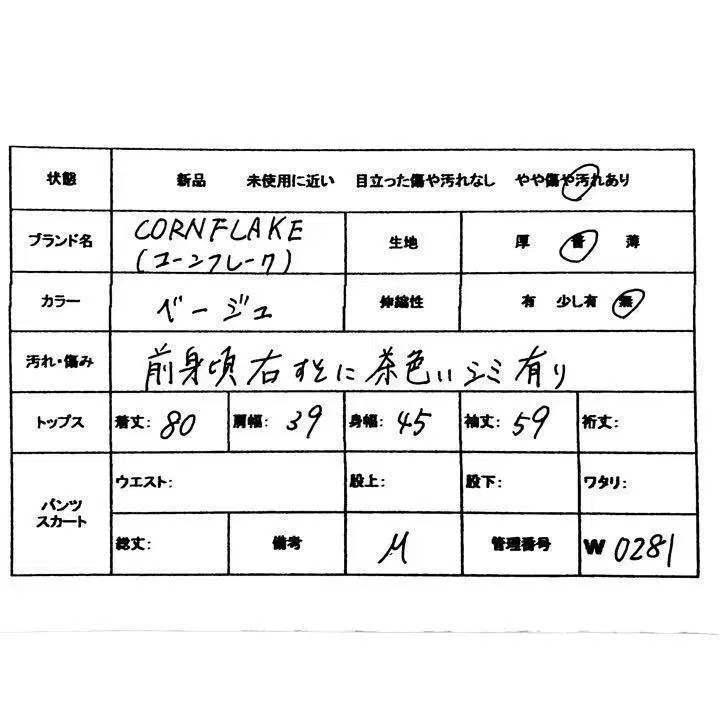 状態 新品 未使用に近い 目立った傷や汚れなし やや傷や汚れあり
ブランド名 CORNFLAKE (コーンフレーク) 生地 厚 普 薄
カラー ベージュ 伸縮性 有 少し有 無
汚れ・傷み 前身頃右すそに茶色いシミ有り
トップス 着丈: 80 肩幅: 39 身幅: 45 袖丈: 59 裄丈:
パンツ スカート ウエスト: 股上: 股下: ワタリ:
総丈: 備考 M 管理番号 W 0281